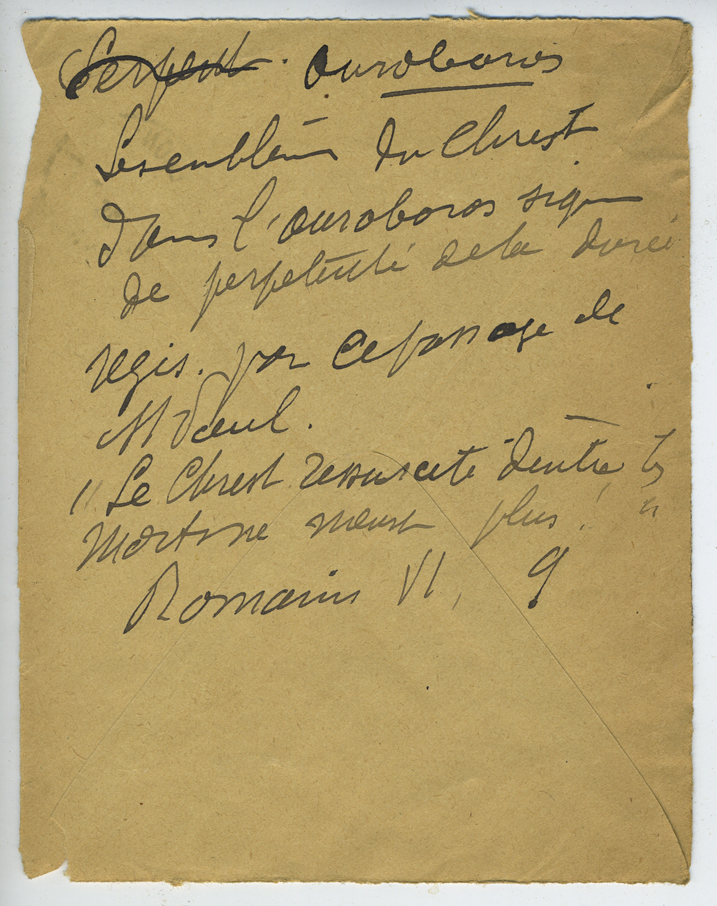 Serpent. Ouroboros
Les emblèmes du Christ
dans l'ouroboros signe
de perpétuité de la durée
régis. par ce passage de
St Paul.
"Le Christ ressuscité d'entre les
Morts ne meurt plus! "
Romains VI, 9